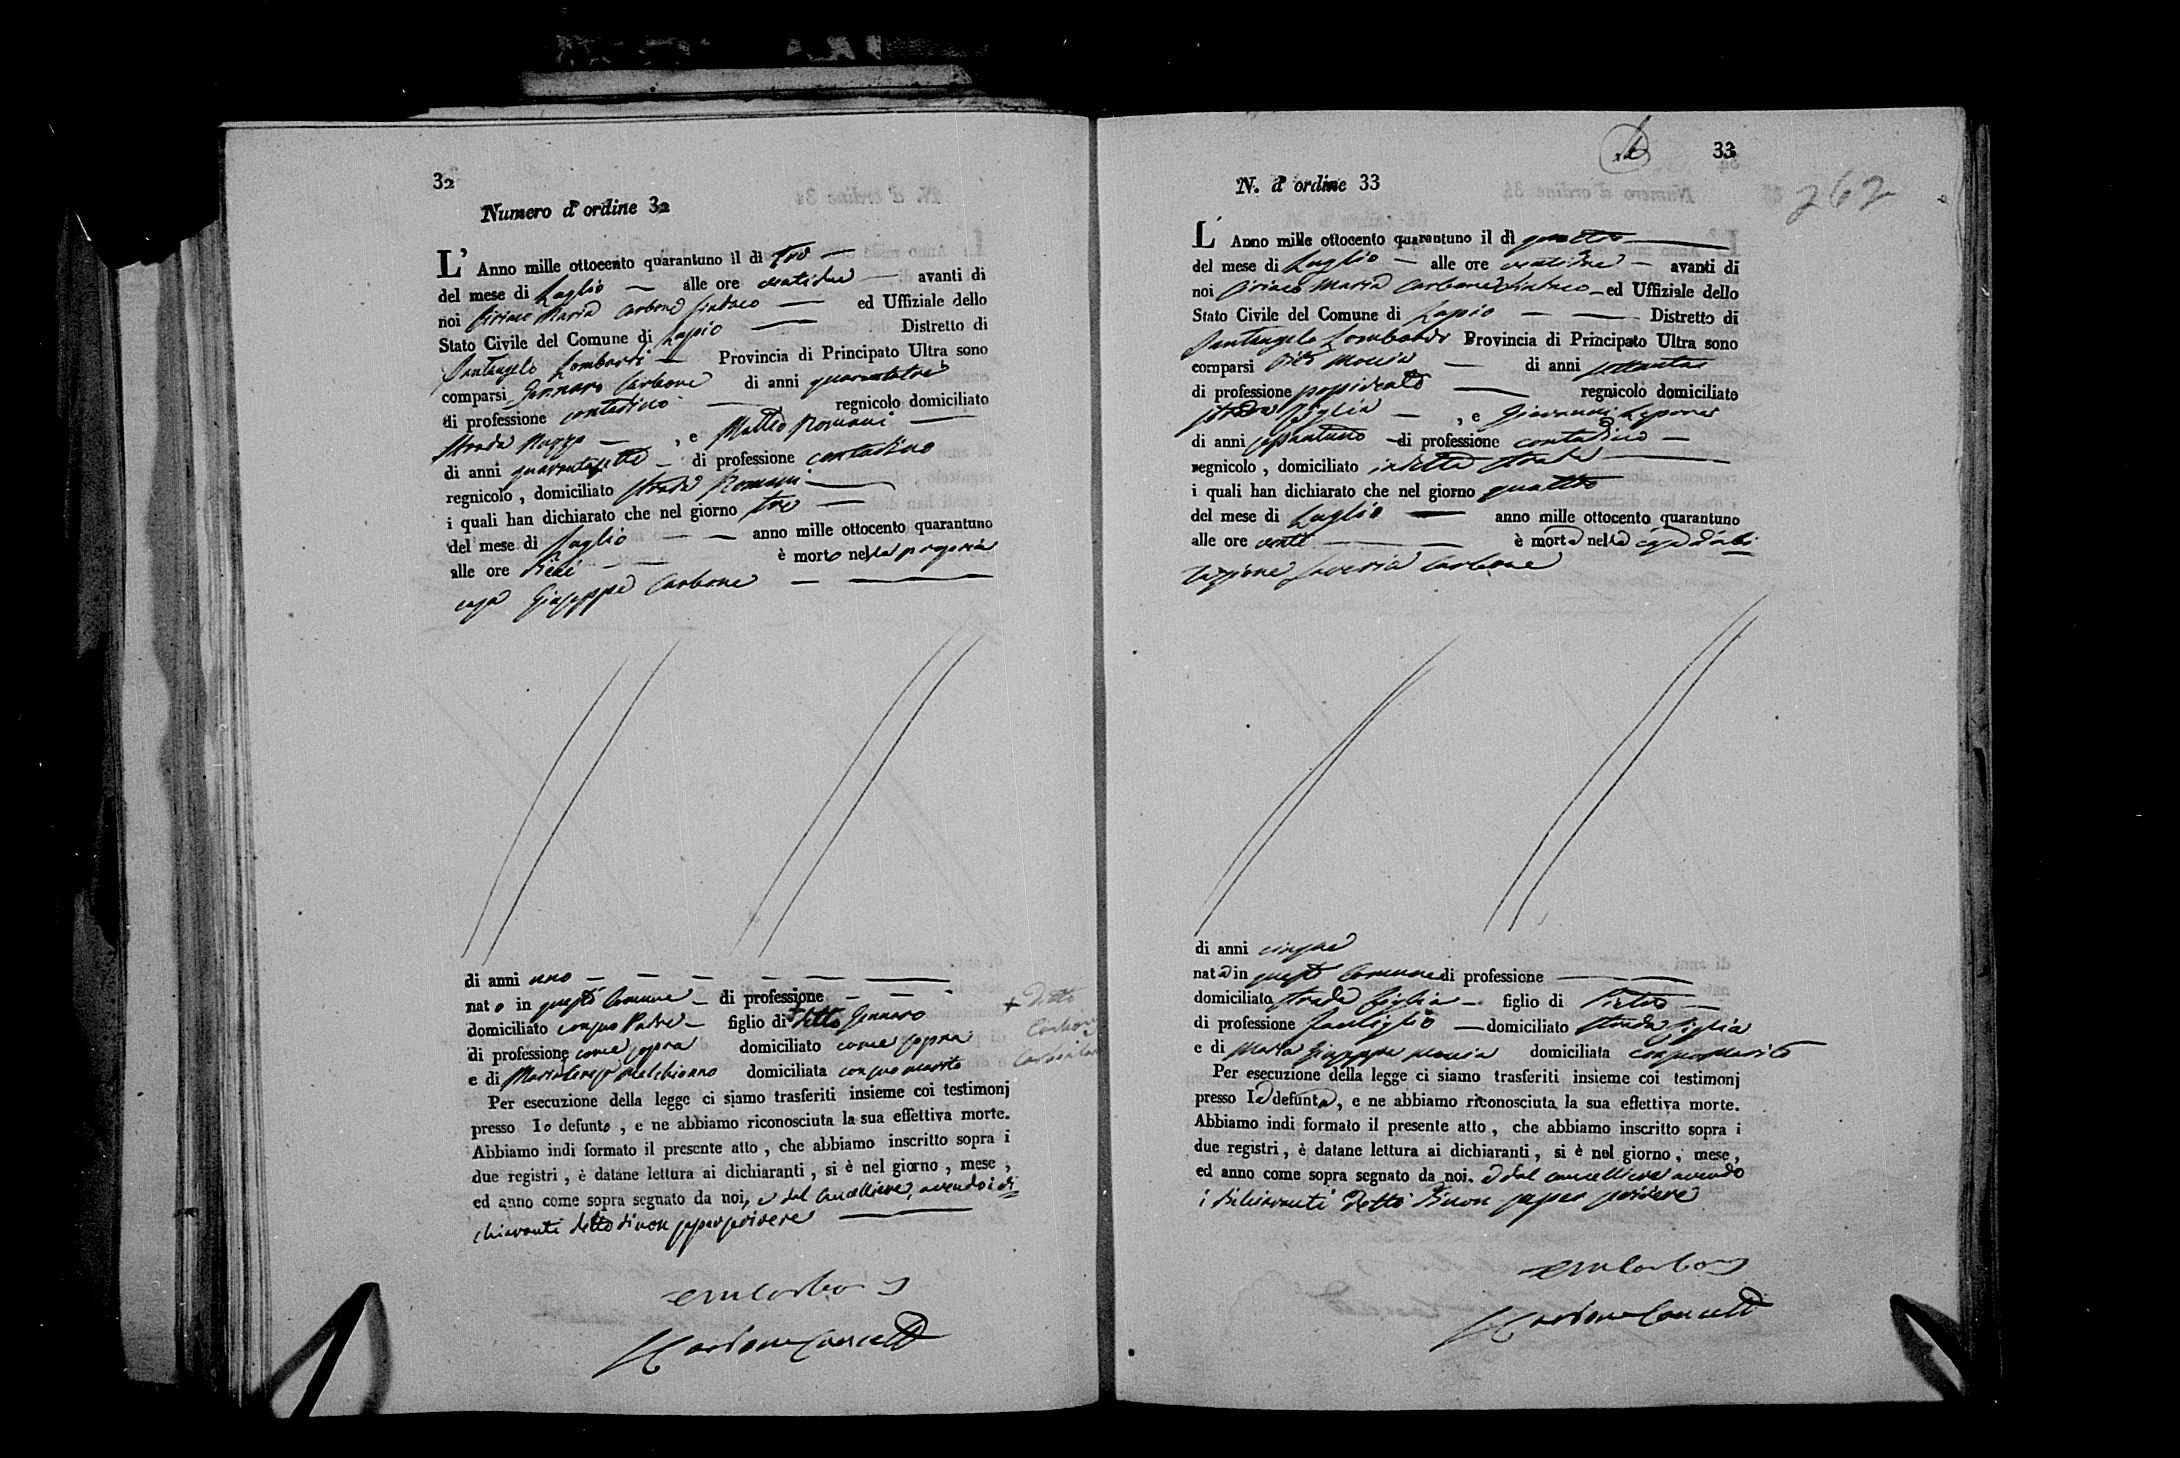 32
Numero d' ordine 32
L' Anno mille ottocento quarantuno il dì tre
del mese di Luglio alle ore ventidue avanti di
noi Ciriaco Maria Carbone Sindaco ed Uffiziale dello
Stato Civile del Comune di Lapio Distretto di
Santangelo Lombardi Provincia di Principato Ultra sono
comparsi Gennaro Carbone di anni quarantatre
di professione contadino regnicolo domiciliato
strada , e Matteo Romani
di anni quarantasette di professione contadino
regnicolo , domiciliato strada Romani
i quali han dichiarato che nel giorno tre
del mese di Luglio anno mille ottocento quarantuno
alle ore dieci è morto nella propria
casa Giuseppe Carbone
di anni uno
nato in questo Comune di professione
domiciliato con suo Padre figlio di + detto Gennaro
+ Ditto
Carbone
di professione come sopra domiciliato come sopra
e di Maria Teresa Melchionno domiciliata con suo marito
Per esecuzione della legge ci siamo trasferiti insieme coi testimonj
presso lo defunto , e ne abbiamo riconosciuta la sua effettiva morte.
Abbiamo indi formato il presente atto , che abbiamo inscritto sopra i
due registri , è datane lettura ai dichiaranti , si è nel giorno , mese ,
ed anno come sopra segnato da noi, e dal Cancelliere, avendo i di=
chiaranti detto di non saper scrivere
CM Carbone
Carbone Cancell
33
262
N. d' ordine 33
L' Anno mille ottocento quarantuno il dì quattro
del mese di Luglio alle ore ventidue avanti di
noi Ciriaco Maria Carbone Sindaco ed Uffiziale dello
Stato Civile del Comune di Lapio Distretto di
Santangelo Lombardi Provincia di Principato Ultra sono
comparsi Vito Moccia di anni settanta
di professione regnicolo domiciliato
strada Figlia , e Giovanni Lepore
di anni di professione contadino
regnicolo , domiciliato in detta strada
i quali han dichiarato che nel giorno quattro
del mese di Luglio anno mille ottocento quarantuno
alle ore venti è morta nella casa d'abi
tazione Saveria Carbone
di anni cinque
nata in questo Comune di professione
domiciliato strada Figlia figlio di Pietro
di professione domiciliato strada Figlia
e di Maria Giuseppa Moccia domiciliata con suo Marito
Per esecuzione della legge ci siamo trasferiti insieme coi testimonj
presso la defunta, e ne abbiamo riconosciuta la sua effettiva morte.
Abbiamo indi formato il presente atto , che abbiamo inscritto sopra i
due registri , è datane lettura ai dichiaranti, si è nel giorno, mese,
ed anno come sopra segnato da noi. e dal cancelliere avendo
i dichiaranti detto di non saper scrivere
CM Carbone
Carbone Cancell